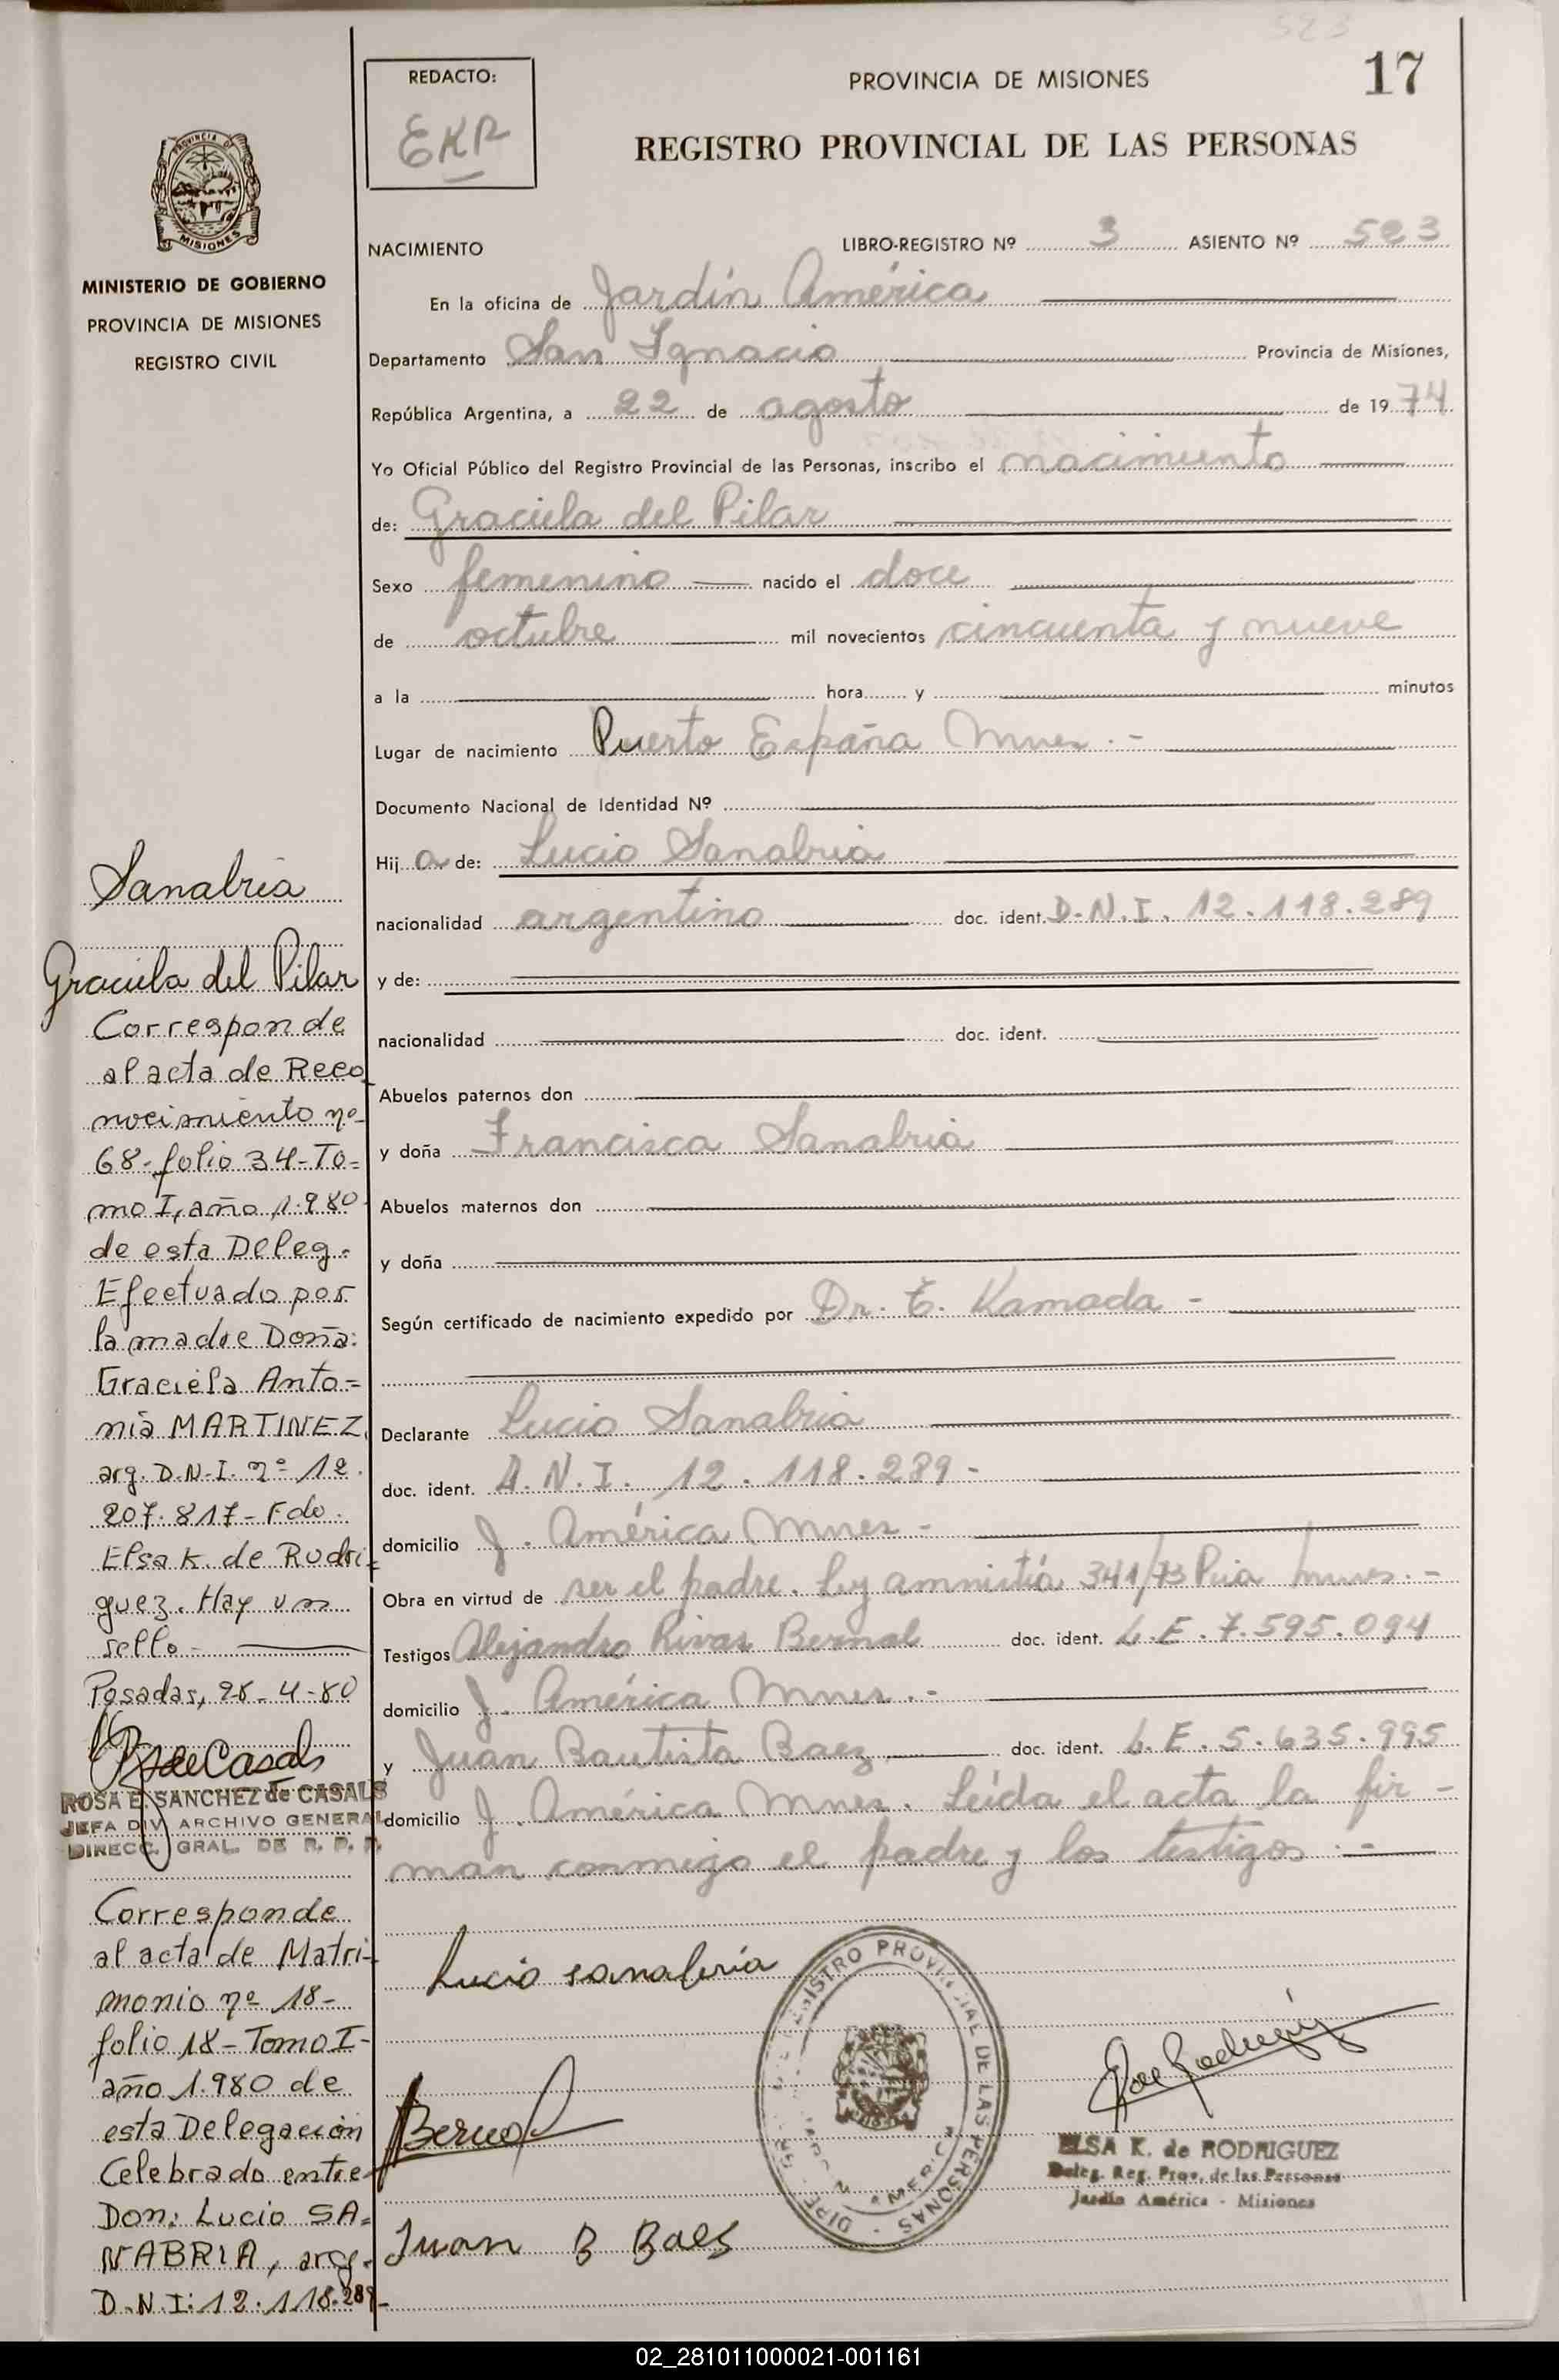 523
17
REDACTO:
EKR
PROVINCIA DE MISIONES
REGISTRO PROVINCIAL DE LAS PERSONAS
PROVINCIA DE
MISIONES
MINISTERIO DE GOBIERNO
PROVINCIA DE MISIONES
REGISTRO CIVIL
NACIMIENTO LIBRO-REGISTRO Nº 3 ASIENTO Nº 523
En la oficina de Jardín América
Departamento San Ignacio Provincia de Misiones,
República Argentina, a 22 de agosto de 1974
Yo Oficial Público del Registro Provincial de las Personas, inscribo el nacimiento
de: Graciela del Pilar
Sexo femenino nacido el doce
de octubre mil novecientos cincuenta y nueve
a la hora y minutos
Lugar de nacimiento Puerto España Mnes.-
Documento Nacional de Identidad Nº
Hija de: Lucio Sanabria
nacionalidad argentino doc. ident. D.N.I. 12.118.289
y de:
nacionalidad doc. ident.
Abuelos paternos don
y doña Francisca Sanabria
Abuelos maternos don
y doña
Según certificado de nacimiento expedido por Dr. T. Kamada -
Declarante Lucio Sanabria
doc. ident. D.N.I. 12.118.289-
domicilio J. América Mnes -
Obra en virtud de ser el padre. Ley amnistía 341/73 Pcia Mnes.-
Testigos Alejandro Rivas Bernal doc. ident. L.E. 7.595.094
domicilio J. América Mnes.-
y Juan Bautista Baez doc. ident. L.E. 5.635.995
domicilio J. América Mnes. Leída el acta la fir-
man conmigo el padre y los testigos.-
Lucio sanabria
Bernal
Juan B Baes
REGISTRO PROVINCIAL DE LAS PERSONAS
ELSA K. de RODRIGUEZ
Deleg. Reg. Prov. de las Personas
Jardín América - Misiones
Sanabria
Graciela del Pilar
Corresponde
al acta de Reco
nocimiento nº
68-folio 34-To=
mo I, año 1.980
de esta Deleg.
Efectuado por
la madre Doña:
Graciela Anto=
nia MARTINEZ,
arg. D.N.I. nº 12.
207.817-Fdo.
Elsa K. de Rodri=
guez. Hay un
sello.-
Posadas, 28-4-80
ROSA E. SANCHEZ de CASALS
JEFA DIV. ARCHIVO GENERAL
DIRECC. GRAL. DE R. P. P.
Corresponde
al acta de Matri-
monio nº 18-
folio 18-Tomo I-
año 1.980 de
esta Delegación
Celebrado entre
Don: Lucio SA=
NABRIA, arg.
D.N.I: 12.118.289-
02_281011000021-001161